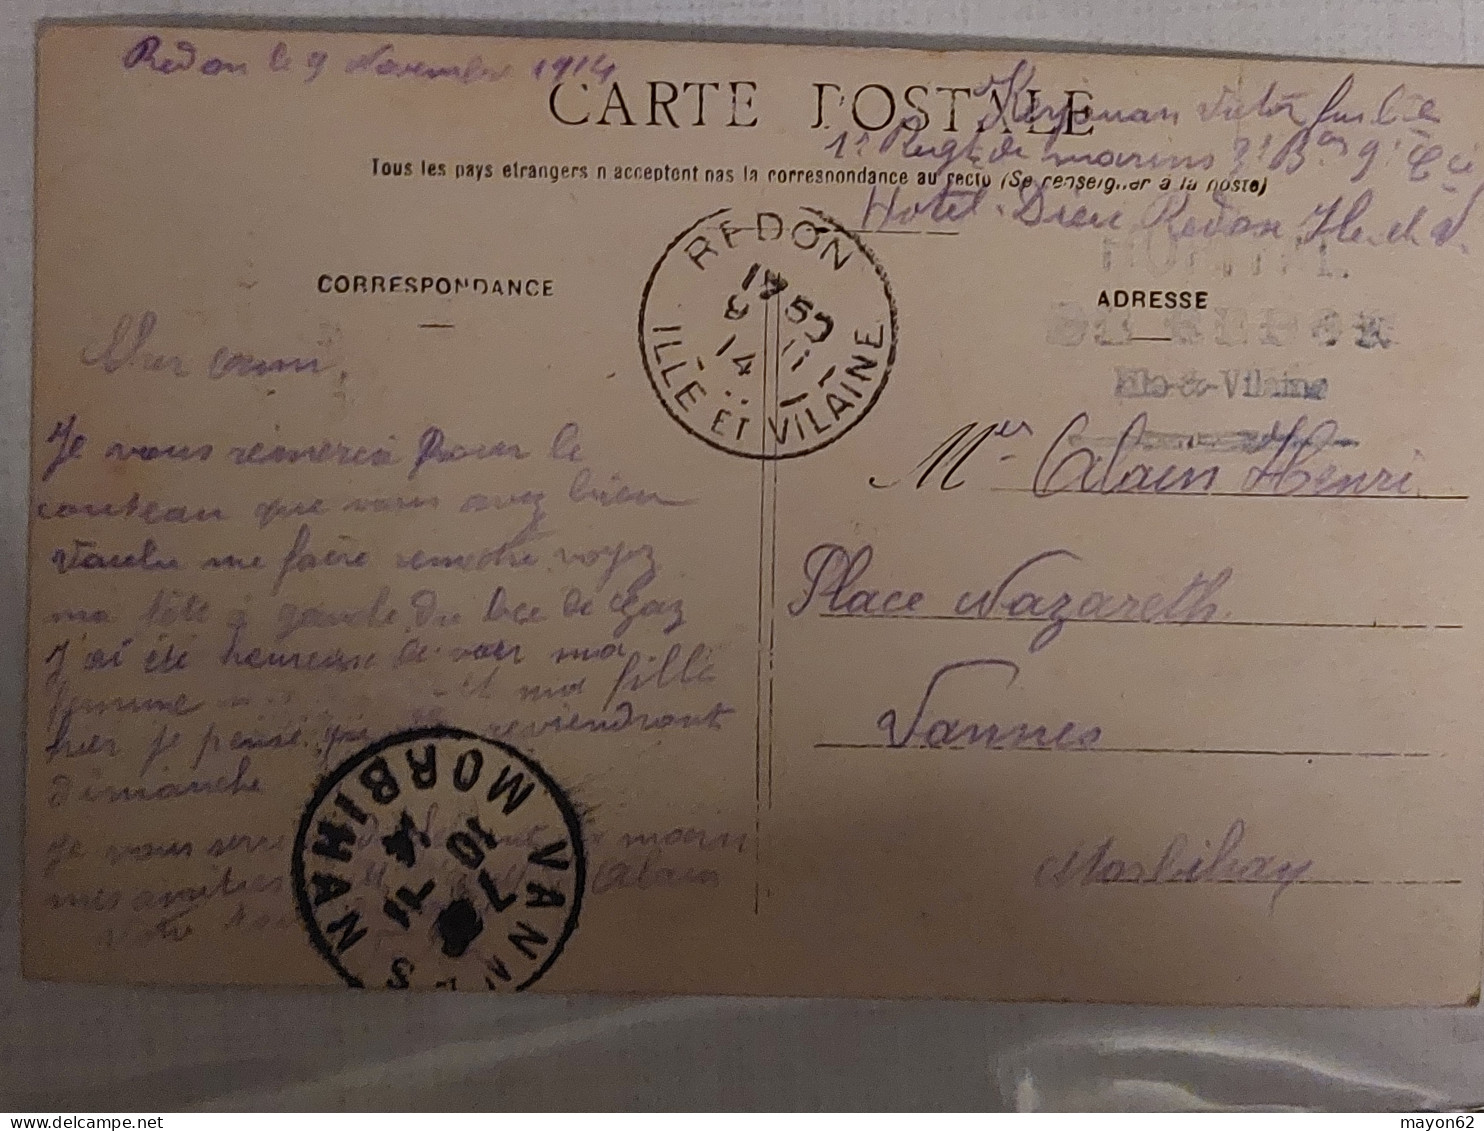 Redon le 9 Novembre 1914
CARTE POSTALE
Kerjouan Victor fusilié
1r Regt de marins 3e Bon 9e Cie
Tous les pays etrangers n acceptent pas la correspondance au recto (Se renseigner à la poste)
Hotel-Dieu Redon Ile et V.
REDON
19 50
8 11
14
ILLE ET VILAINE
CORRESPONDANCE
ADRESSE
HOPITAL
DE REDON
Ille-&-Vilaine
Cher
Je vous remerci pour le
couteau que vous avez bien
voulu me faire remetre voyez
ma tête à gauche du bec de Gaz
J'ai été heureux de voir ma
femme et ma fille
hier je pense qu reviendront
dimanche
je vous serre la main
mes amitiés Alain
Votre
VANNES MORBIHAN
10 7
11
14
Mr Alain Henri
Place Nazareth
Vannes
Morbihan
delcampe.net
mayon62